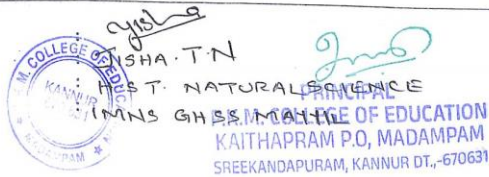 JISHA.T.N
H.S.T. NATURAL SCIENCE
IMNS GHSS MAYYIL
PRINCIPAL
COLLEGE OF EDUCATION
KAITHAPRAM P.O, MADAMPAM
SREEKANDAPURAM, KANNUR DT.,-670631
M. COLLEGE OF EDUC
KANNUR
MADAMPAM